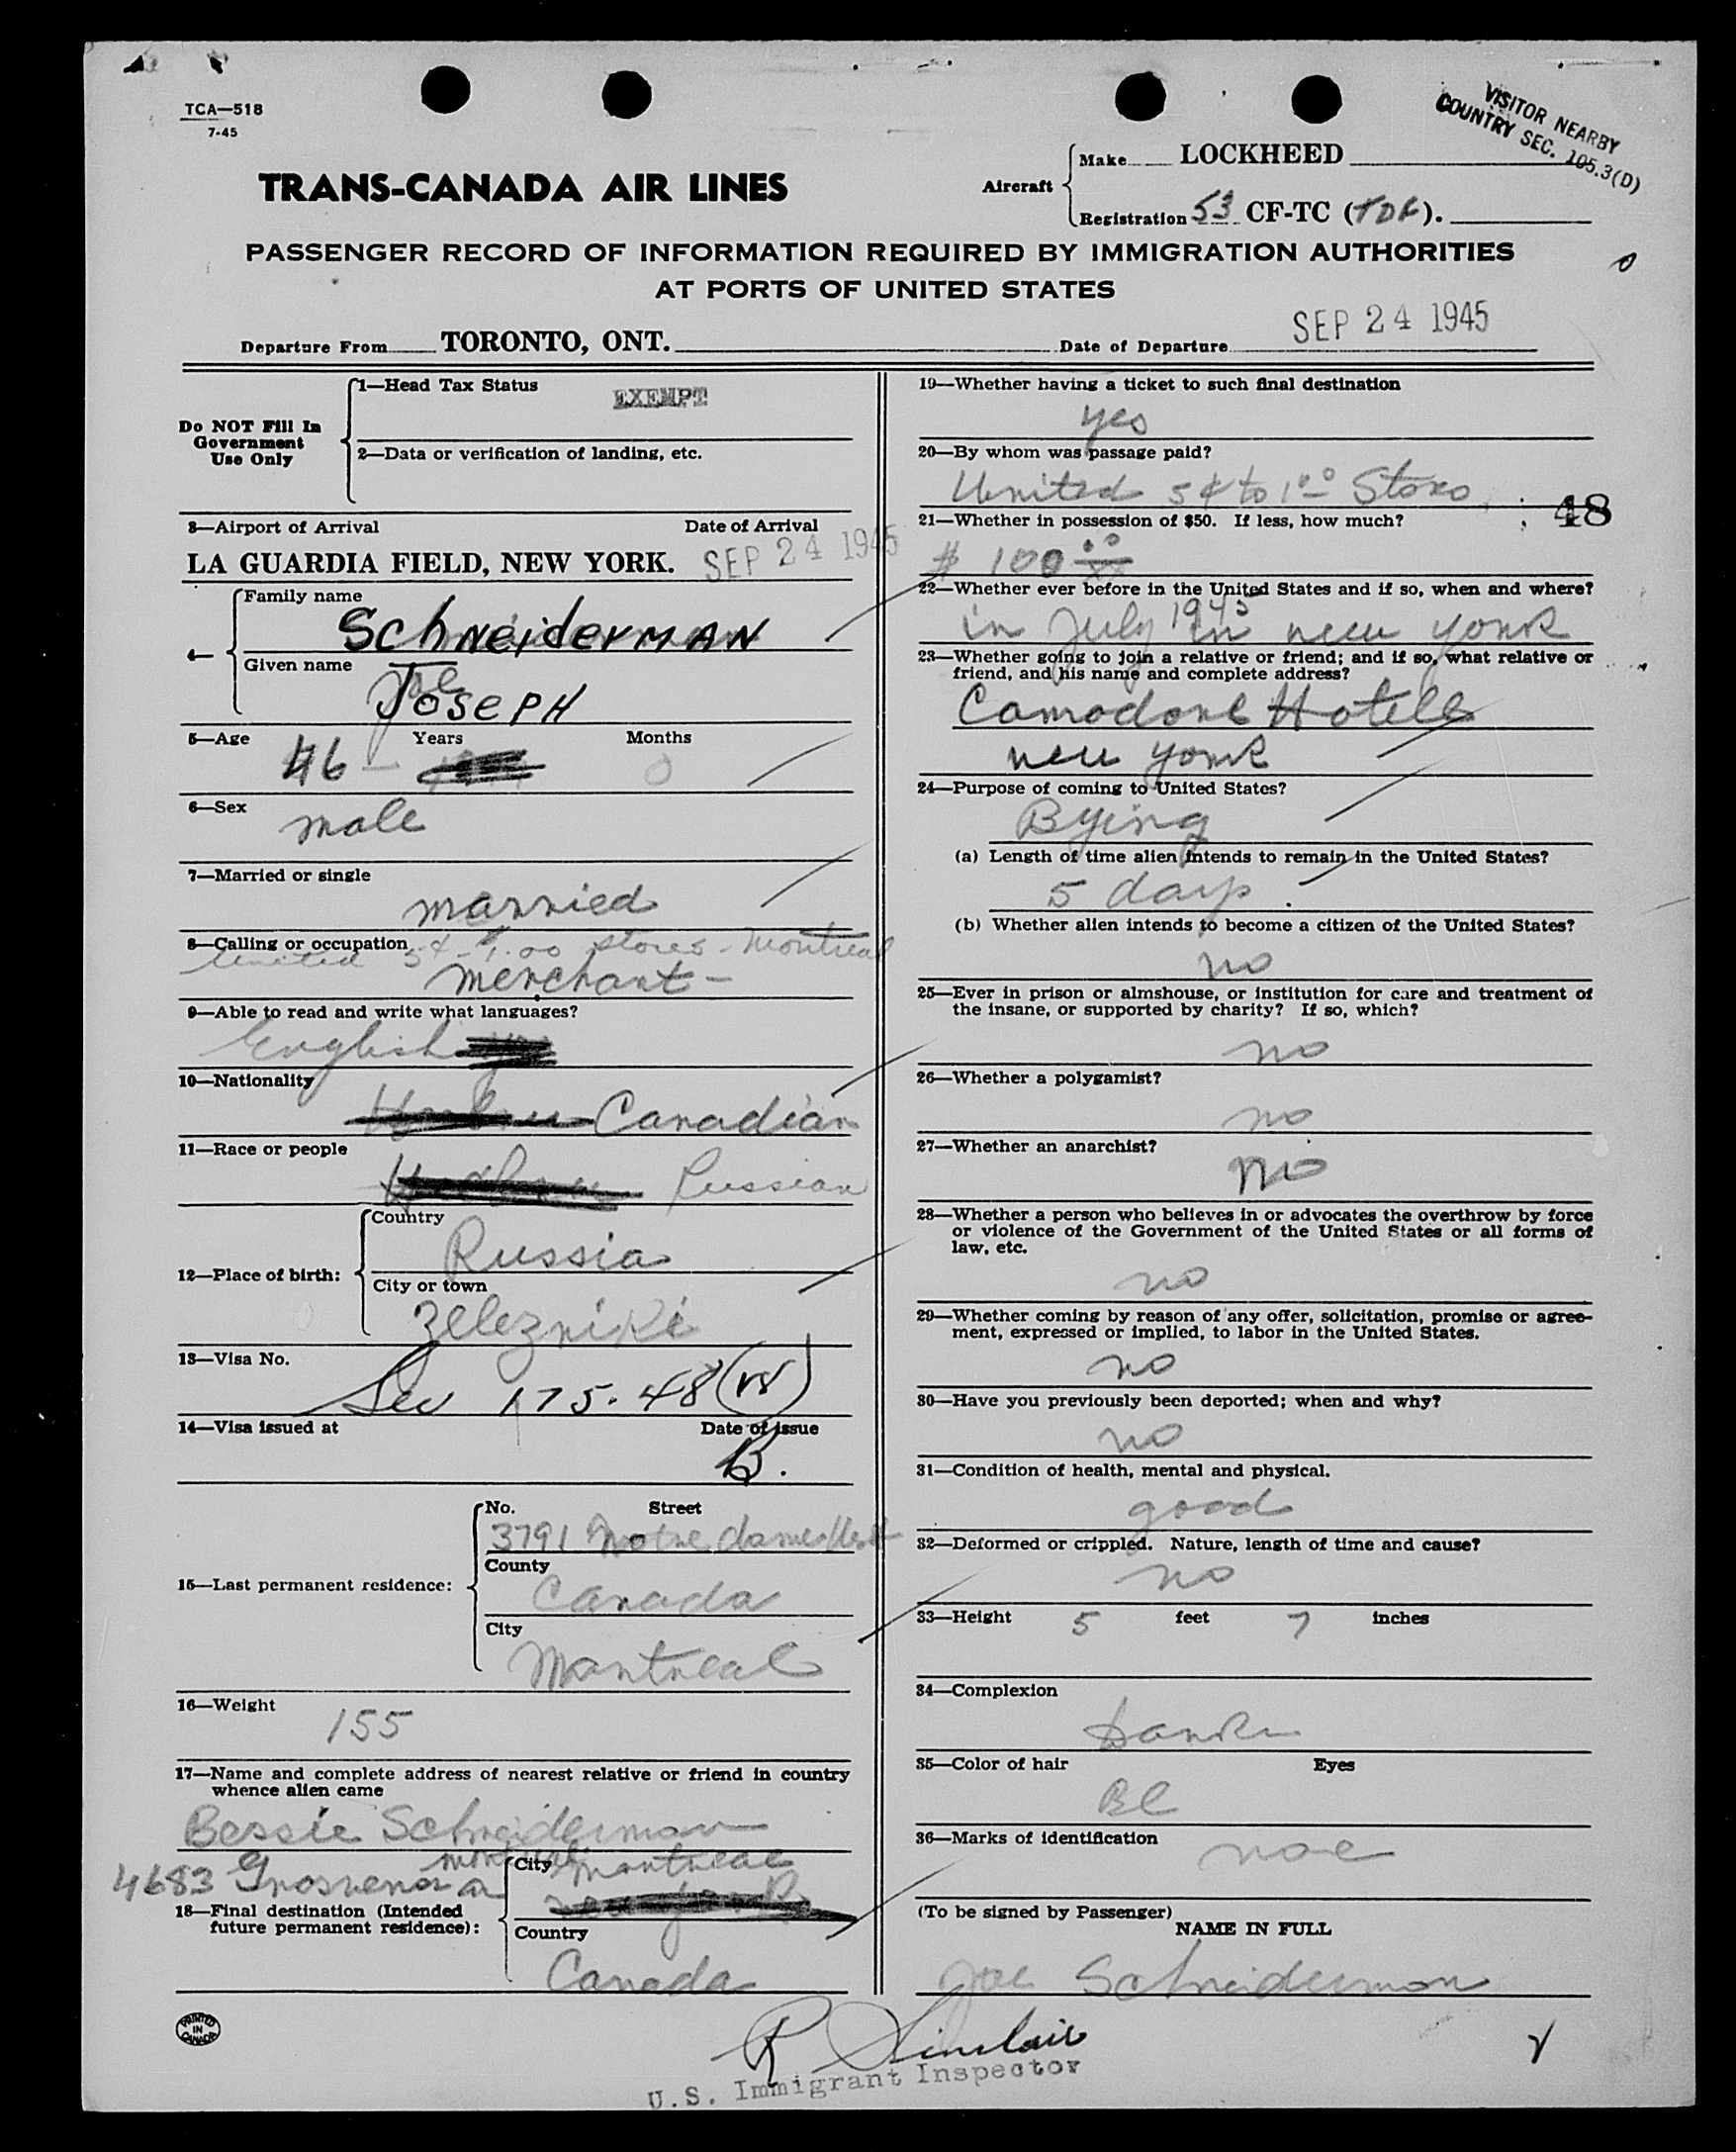 TCA—518
7-45
VISITOR NEARBY
COUNTRY SEC. 105.3(D)
TRANS-CANADA AIR LINES
Aircraft
Make LOCKHEED
Registration 53 CF-TC (TDF).
PASSENGER RECORD OF INFORMATION REQUIRED BY IMMIGRATION AUTHORITIES
AT PORTS OF UNITED STATES
Departure From TORONTO, ONT.
Date of Departure SEP 24 1945
Do NOT Fill In
Government
Use Only
1—Head Tax Status EXEMPT
2—Data or verification of landing, etc.
3—Airport of Arrival Date of Arrival
LA GUARDIA FIELD, NEW YORK. SEP 24 1945
4—
Family name
Schneiderman
Given name
Joseph
5—Age 46 - Years Months 0
6—Sex
male
7—Married or single
married
8—Calling or occupation
United 5¢-$1.00 stores - Montreal
merchant -
9—Able to read and write what languages?
English
10—Nationality
Canadian
11—Race or people
Russian
12—Place of birth:
Country
Russia
City or town
Zelezniki
13—Visa No.
Sec 175.48
14—Visa issued at Date of issue
B.
15—Last permanent residence:
No. Street
3791 Notre dame West
County
Canada
City
Montreal
16—Weight
155
17—Name and complete address of nearest relative or friend in country
whence alien came
Bessie Schneiderman
4683 Grosvenor av Montreal
18—Final destination (Intended
future permanent residence):
City Montreal
Country
Canada
19—Whether having a ticket to such final destination
yes
20—By whom was passage paid?
United 5¢ to 1.00 Stores
48
21—Whether in possession of $50. If less, how much?
$ 100 00/xx
22—Whether ever before in the United States and if so, when and where?
in July 1945 in new york
23—Whether going to join a relative or friend; and if so, what relative or
friend, and his name and complete address?
Comodore Hotell
new york
24—Purpose of coming to United States?
Bying
(a) Length of time alien intends to remain in the United States?
5 days.
(b) Whether alien intends to become a citizen of the United States?
no
25—Ever in prison or almshouse, or institution for care and treatment of
the insane, or supported by charity? If so, which?
no
26—Whether a polygamist?
no
27—Whether an anarchist?
no
28—Whether a person who believes in or advocates the overthrow by force
or violence of the Government of the United States or all forms of
law, etc.
no
29—Whether coming by reason of any offer, solicitation, promise or agree-
ment, expressed or implied, to labor in the United States.
no
30—Have you previously been deported; when and why?
no
31—Condition of health, mental and physical.
good
32—Deformed or crippled. Nature, length of time and cause?
no
33—Height 5 feet 7 inches
34—Complexion
Dark
35—Color of hair Eyes
Bl
36—Marks of identification noe
(To be signed by Passenger)
NAME IN FULL
Joe Schneiderman
PRINTED
IN
CANADA
R Sinclair
U.S. Immigrant Inspector